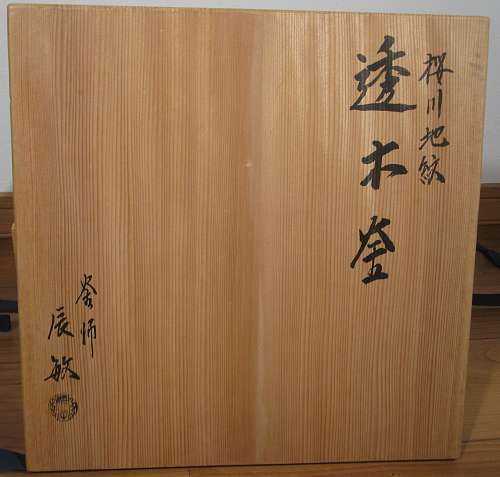 桜川地紋
透木釜
釜師
辰敏